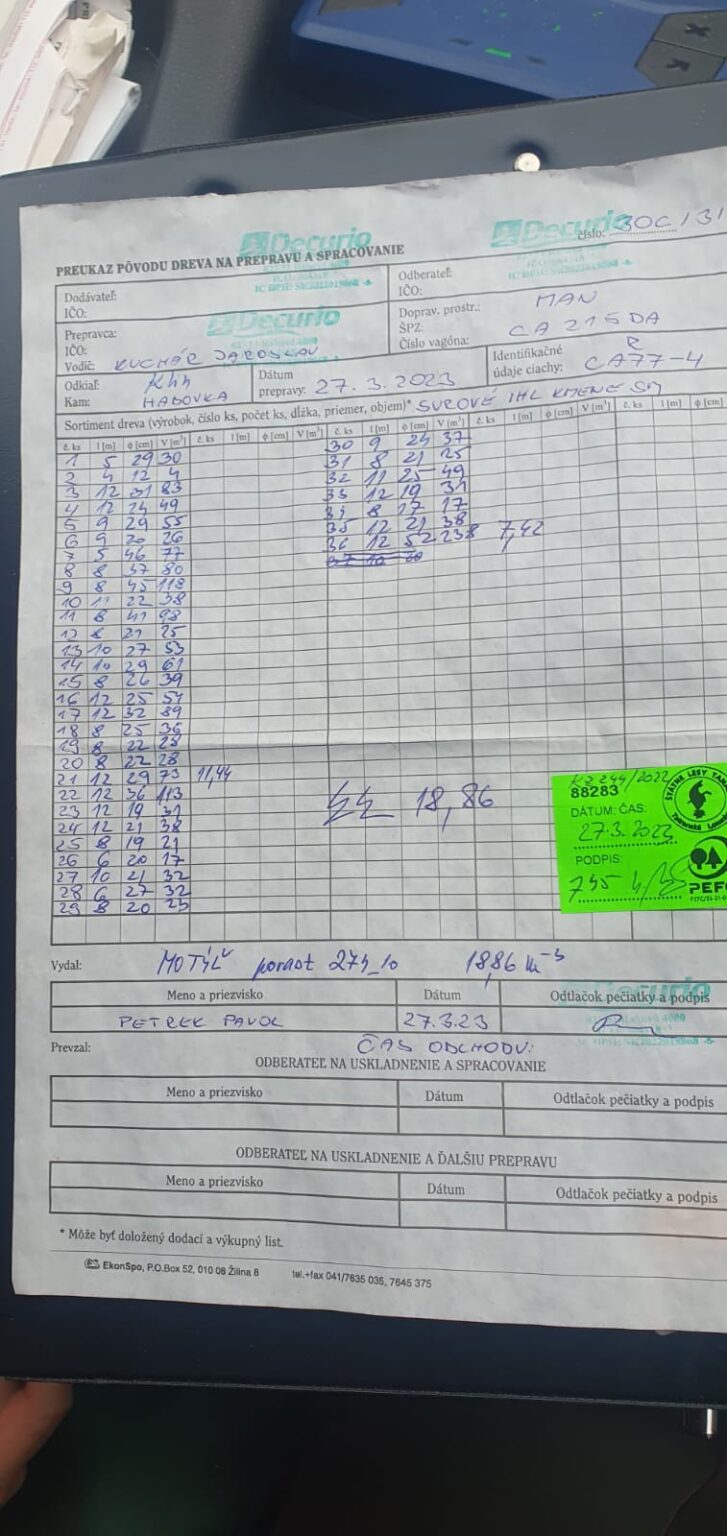 Decurio
Decurio
číslo: 30C/31
PREUKAZ PÔVODU DREVA NA PREPRAVU A SPRACOVANIE
IČ DPH: SK2022019868
Dodávateľ:
IČO:
Odberateľ:
IČO:
Decurio
Prepravca:
IČO:
Vodič: KUCHÁR JAROSLAV
Doprav. prostr.: MAN
ŠPZ: CA 215 DA
Číslo vagóna:
Odkiaľ: Klin
Kam: HABOVKA
Dátum
prepravy: 27.3.2023
Identifikačné
údaje ciachy: R CA77-4
Sortiment dreva (výrobok, číslo ks, počet ks, dĺžka, priemer, objem)* SUROVÉ IHL KMENE SM
č. ks l [m] ϕ [cm] V [m³] č. ks l [m] ϕ [cm] V [m³] č. ks l [m] ϕ [cm] V [m³] č. ks l [m] ϕ [cm] V [m³] č. ks l [m] ϕ [cm]
1 5 29 30
2 4 12 4
3 12 31 83
4 12 24 49
5 9 29 55
6 9 20 26
7 5 46 77
8 8 37 80
9 8 45 118
10 11 22 38
11 8 41 98
12 8 21 25
13 10 27 53
14 10 29 61
15 8 26 39
16 12 25 54
17 12 32 89
18 8 25 36
19 8 22 28
20 8 22 28
21 12 29 73 11,44
22 12 36 113
23 12 19 31
24 12 21 38
25 8 19 21
26 6 20 17
27 10 21 32
28 6 27 32
29 8 20 23
30 9 24 37
31 8 21 25
32 11 25 49
33 12 19 31
34 8 17 17
35 12 21 38
36 12 52 238 7,42
37 10 20
18,86
KZ 244/2022
88283
DÁTUM: ČAS:
27.3.2023
PODPIS:
745
ŠTÁTNE LESY
PEFC
Vydal: MOTÝĽ porast 274_10 18,86 m-3
Meno a priezvisko Dátum Odtlačok pečiatky a podpis
PETREK PAVOL 27.3.23
Decurio
Prevzal: ČAS ODCHODU:
ODBERATEĽ NA USKLADNENIE A SPRACOVANIE
Meno a priezvisko Dátum Odtlačok pečiatky a podpis
ODBERATEĽ NA USKLADNENIE A ĎALŠIU PREPRAVU
Meno a priezvisko Dátum Odtlačok pečiatky a podpis
* Môže byť doložený dodací a výkupný list.
EkonSpo, P.O.Box 52, 010 08 Žilina 8 tel.+fax 041/7635 035, 7645 375